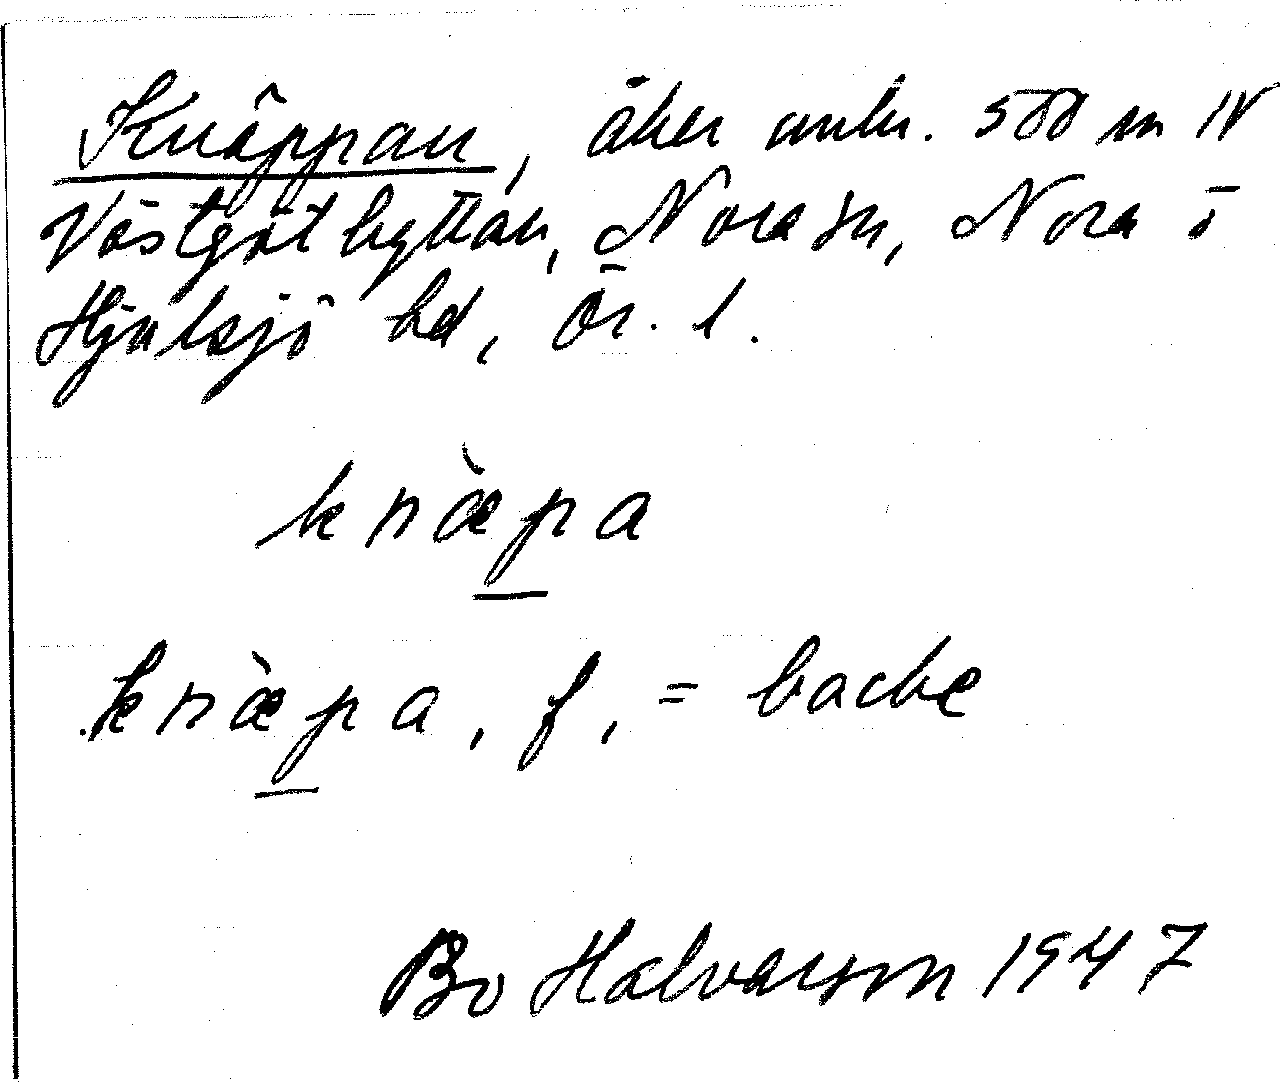 Knäppan, åker omkr. 500 m N
Västgöthyttan, Nora sn, Nora ö
Hjulsjö hd, Ör. l.
knæ̀pa
knæ̀pa, f, = backe
Bo Halvarson 1947